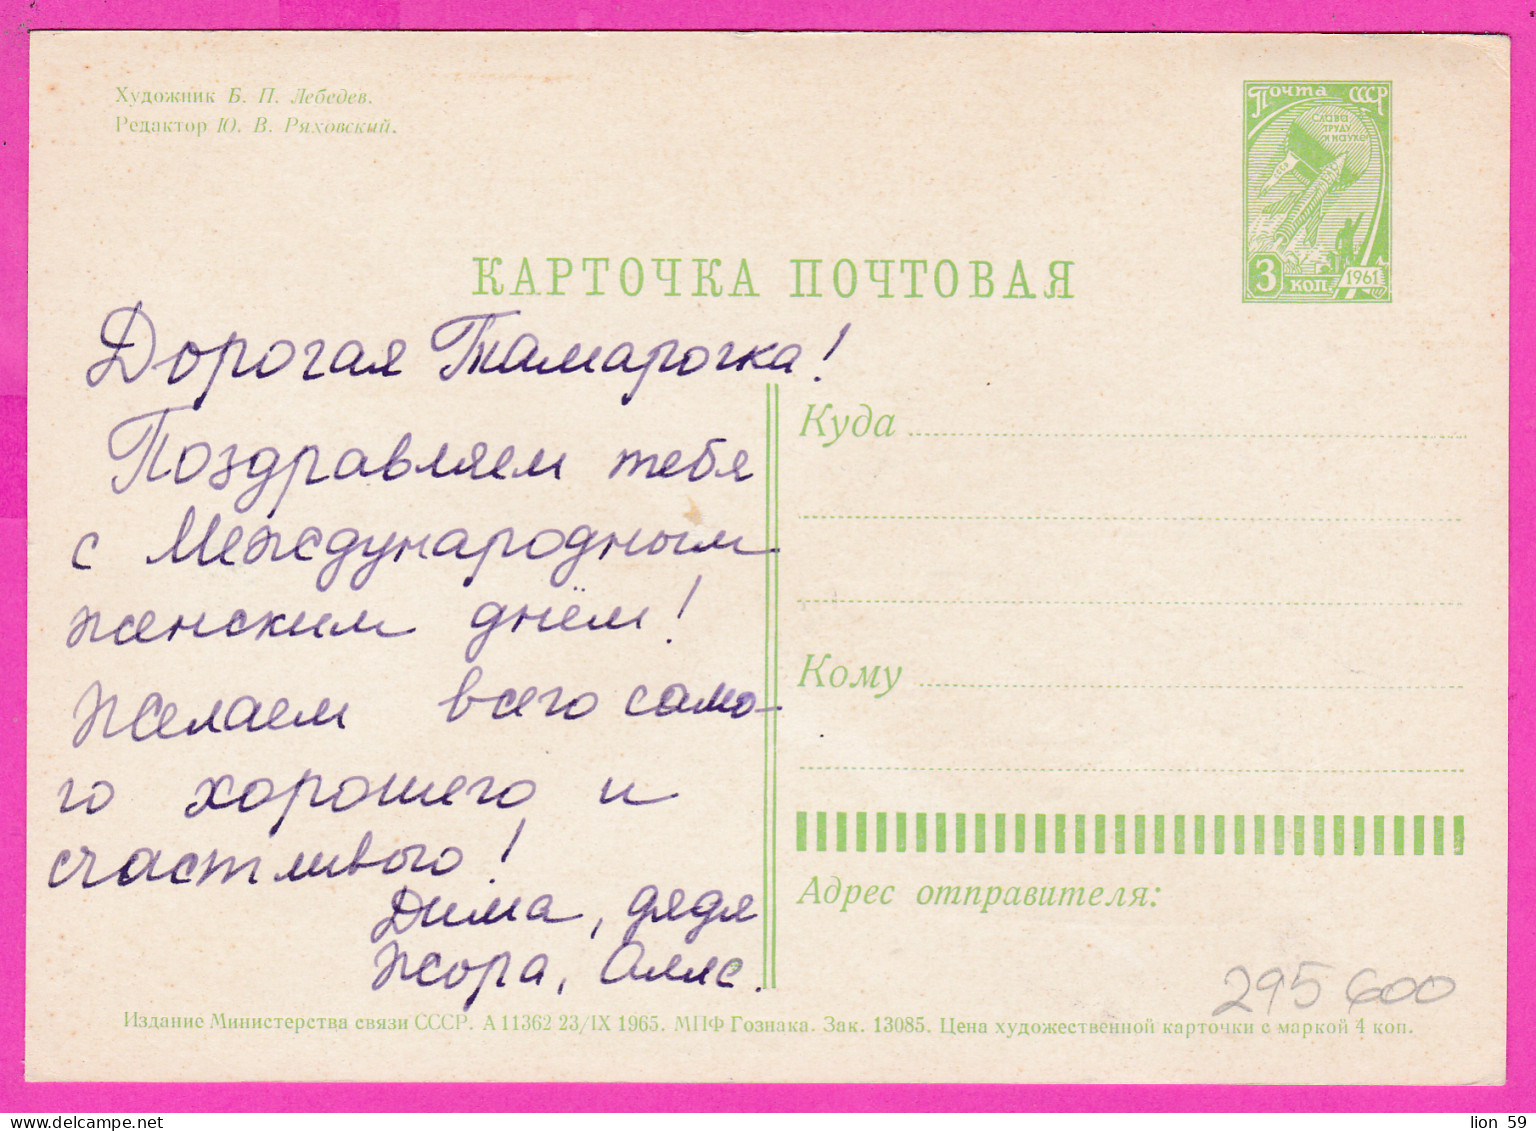 Художник Б. П. Лебедев.
Редактор Ю. В. Ряховский.
Почта СССР
слава
труду
и науке
СССР
3 коп. 1961
КАРТОЧКА ПОЧТОВАЯ
Дорогая Тамарочка!
Поздравляем тебя
с Международным
женским днём!
Желаем всего само-
го хорошего и
счастливого!
Дима, дядя
Жора, Аляс.
Куда
Кому
Адрес отправителя:
295600
Издание Министерства связи СССР. А 11362 23/IX 1965. МПФ Гознака. Зак. 13085. Цена художественной карточки с маркой 4 коп.
lion 59
delcampe.net